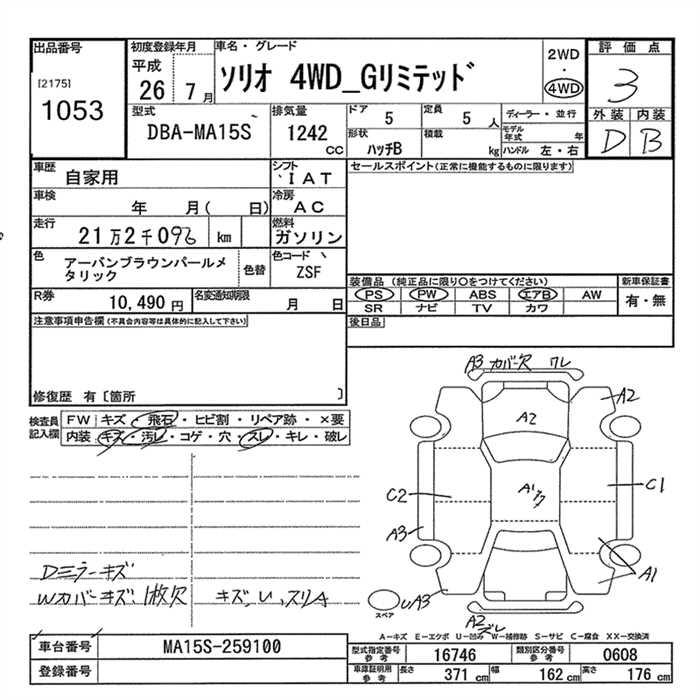 出品番号 初度登録年月 車名・グレード 評価点
[2175] 1053 平成 26 7月 ソリオ 4WD_Gリミテッド 2WD ・ 4WD 3
型式 排気量 ドア 5 定員 5 人 ディーラー・並行 外装 内装
DBA-MA15S 1242 CC 形状 ハッチB 積載 kg モデル年式 年 ハンドル 左・右 D B
車歴 自家用 シフト IAT セールスポイント(正常に機能するものに限ります)
車検 年 月( 日) 冷房 AC
走行 21万2千096 km 燃料 ガソリン
色 アーバンブラウンパールメタリック 色替 色コード ZSF
装備品 (純正品に限り○をつけてください) 新車保証書
R券 10,490円 名変通知期限 月 日 PS PW ABS エアB AW 有・無
SR ナビ TV カワ
注意事項申告欄(不具合内容等は具体的に記入して下さい) 後日品
修復歴 有[箇所 ]
検査員記入欄 FW キズ・飛石・ヒビ割・リペア跡・×要
内装 キズ・汚レ・コゲ・穴・スレ・キレ・破レ
A3 カバー欠 ワレ
A2
A2
A1
C2
C1
A3
A1
UA3
A2 ズレ
スペア
Dミラーキズ
Wカバーキズ、1枚欠 キズ、U、スリA
A-キズ E-エクボ U-凹み W-補修跡 S-サビ C-腐食 XX-交換済
車台番号 MA15S-259100 型式指定番号 参考 16746 類別区分番号 参考 0608
登録番号 車庫証明用 参考 長さ 371 cm 幅 162 cm 高さ 176 cm